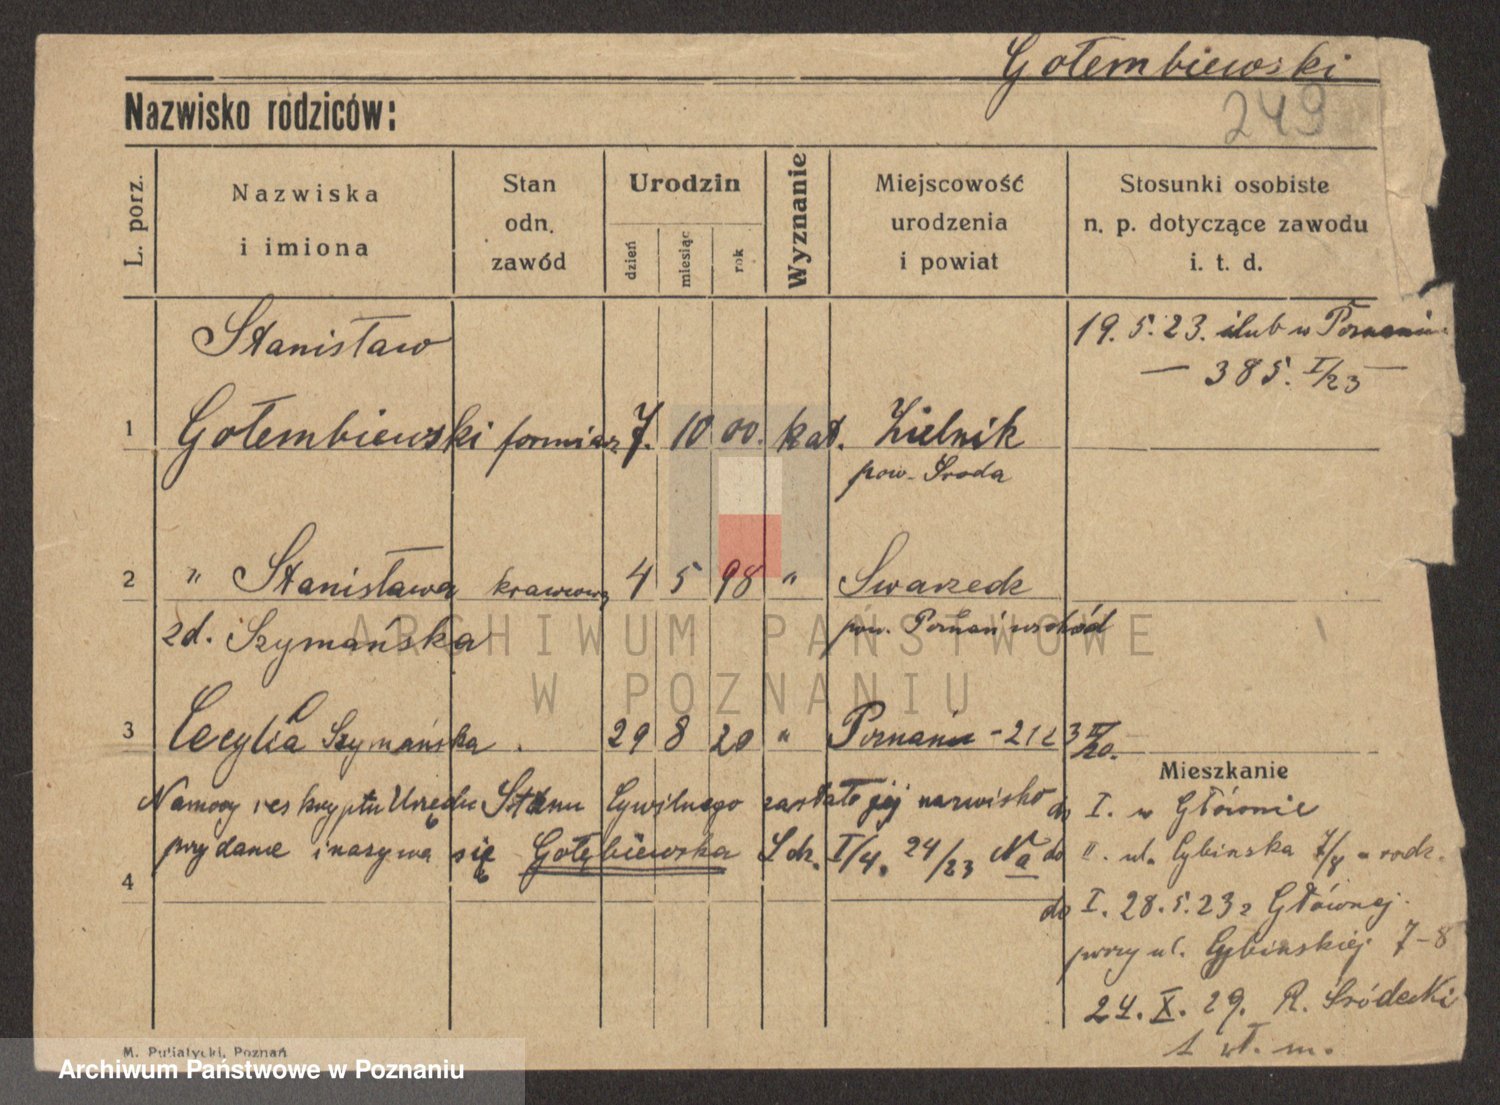 Gołembiewski
249
Nazwisko rodziców:
L. porz.
Nazwiska
i imiona
Stan
odn.
zawód
Urodzin
dzień
miesiąc
rok
Wyznanie
Miejscowość
urodzenia
i powiat
Stosunki osobiste
n. p. dotyczące zawodu
i. t. d.
Stanisław
19. 5. 23. ślub w Poznaniu
— 385. I/23 —
1 Gołembiewski formierz 7. 10 00. kat. Zielnik
pow. Środa
2 " Stanisława krawcowa 4 5 98 " Swarzedz
zd. Szymańska pow. Poznań wschód
3 Cecylia Szymańska. 29 8 20 " Poznaniu - 2123 II/20.
Na mocy reskryptu Urzędu Stanu Cywilnego zastało jej nazwisko
przydane i nazywa się Gołębiewska L dz. I/4. 24/23 Na
4
Mieszkanie
do I. w Głównie
do II. ul. Cybinska 7/8 a rodz.
do I. 28. 5. 23 z Głównej.
przy ul. Cybinskiej 7-8
24. X. 29. R. Śródecki
1 wł. m.
M. Putiatycki, Poznań
ARCHIWUM PAŃSTWOWE
W POZNANIU
Archiwum Państwowe w Poznaniu